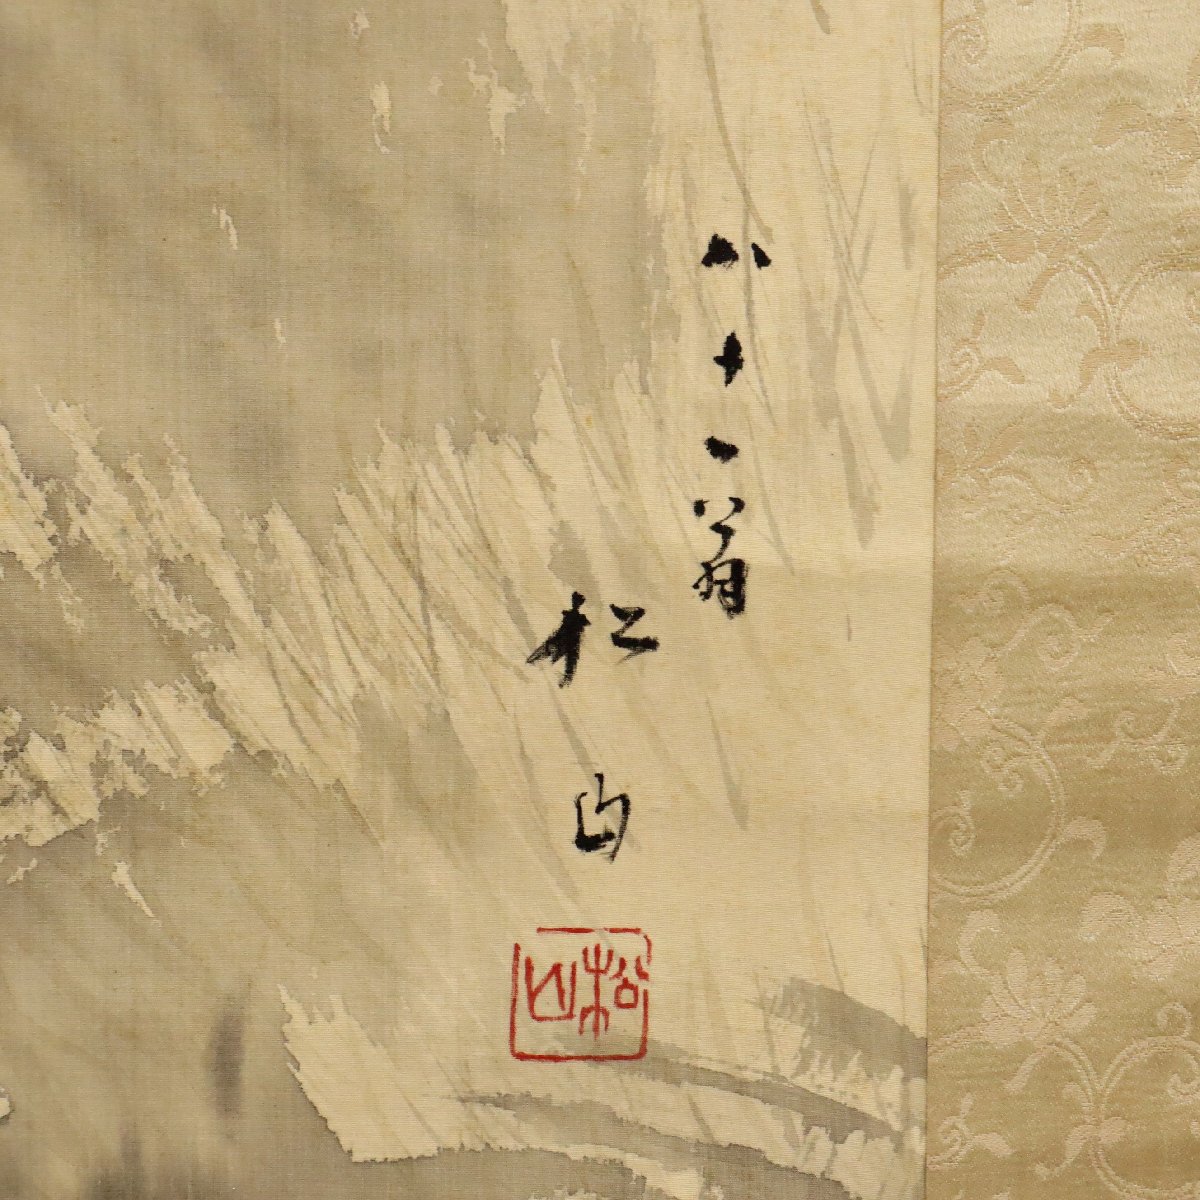 八十一翁
松山
松山